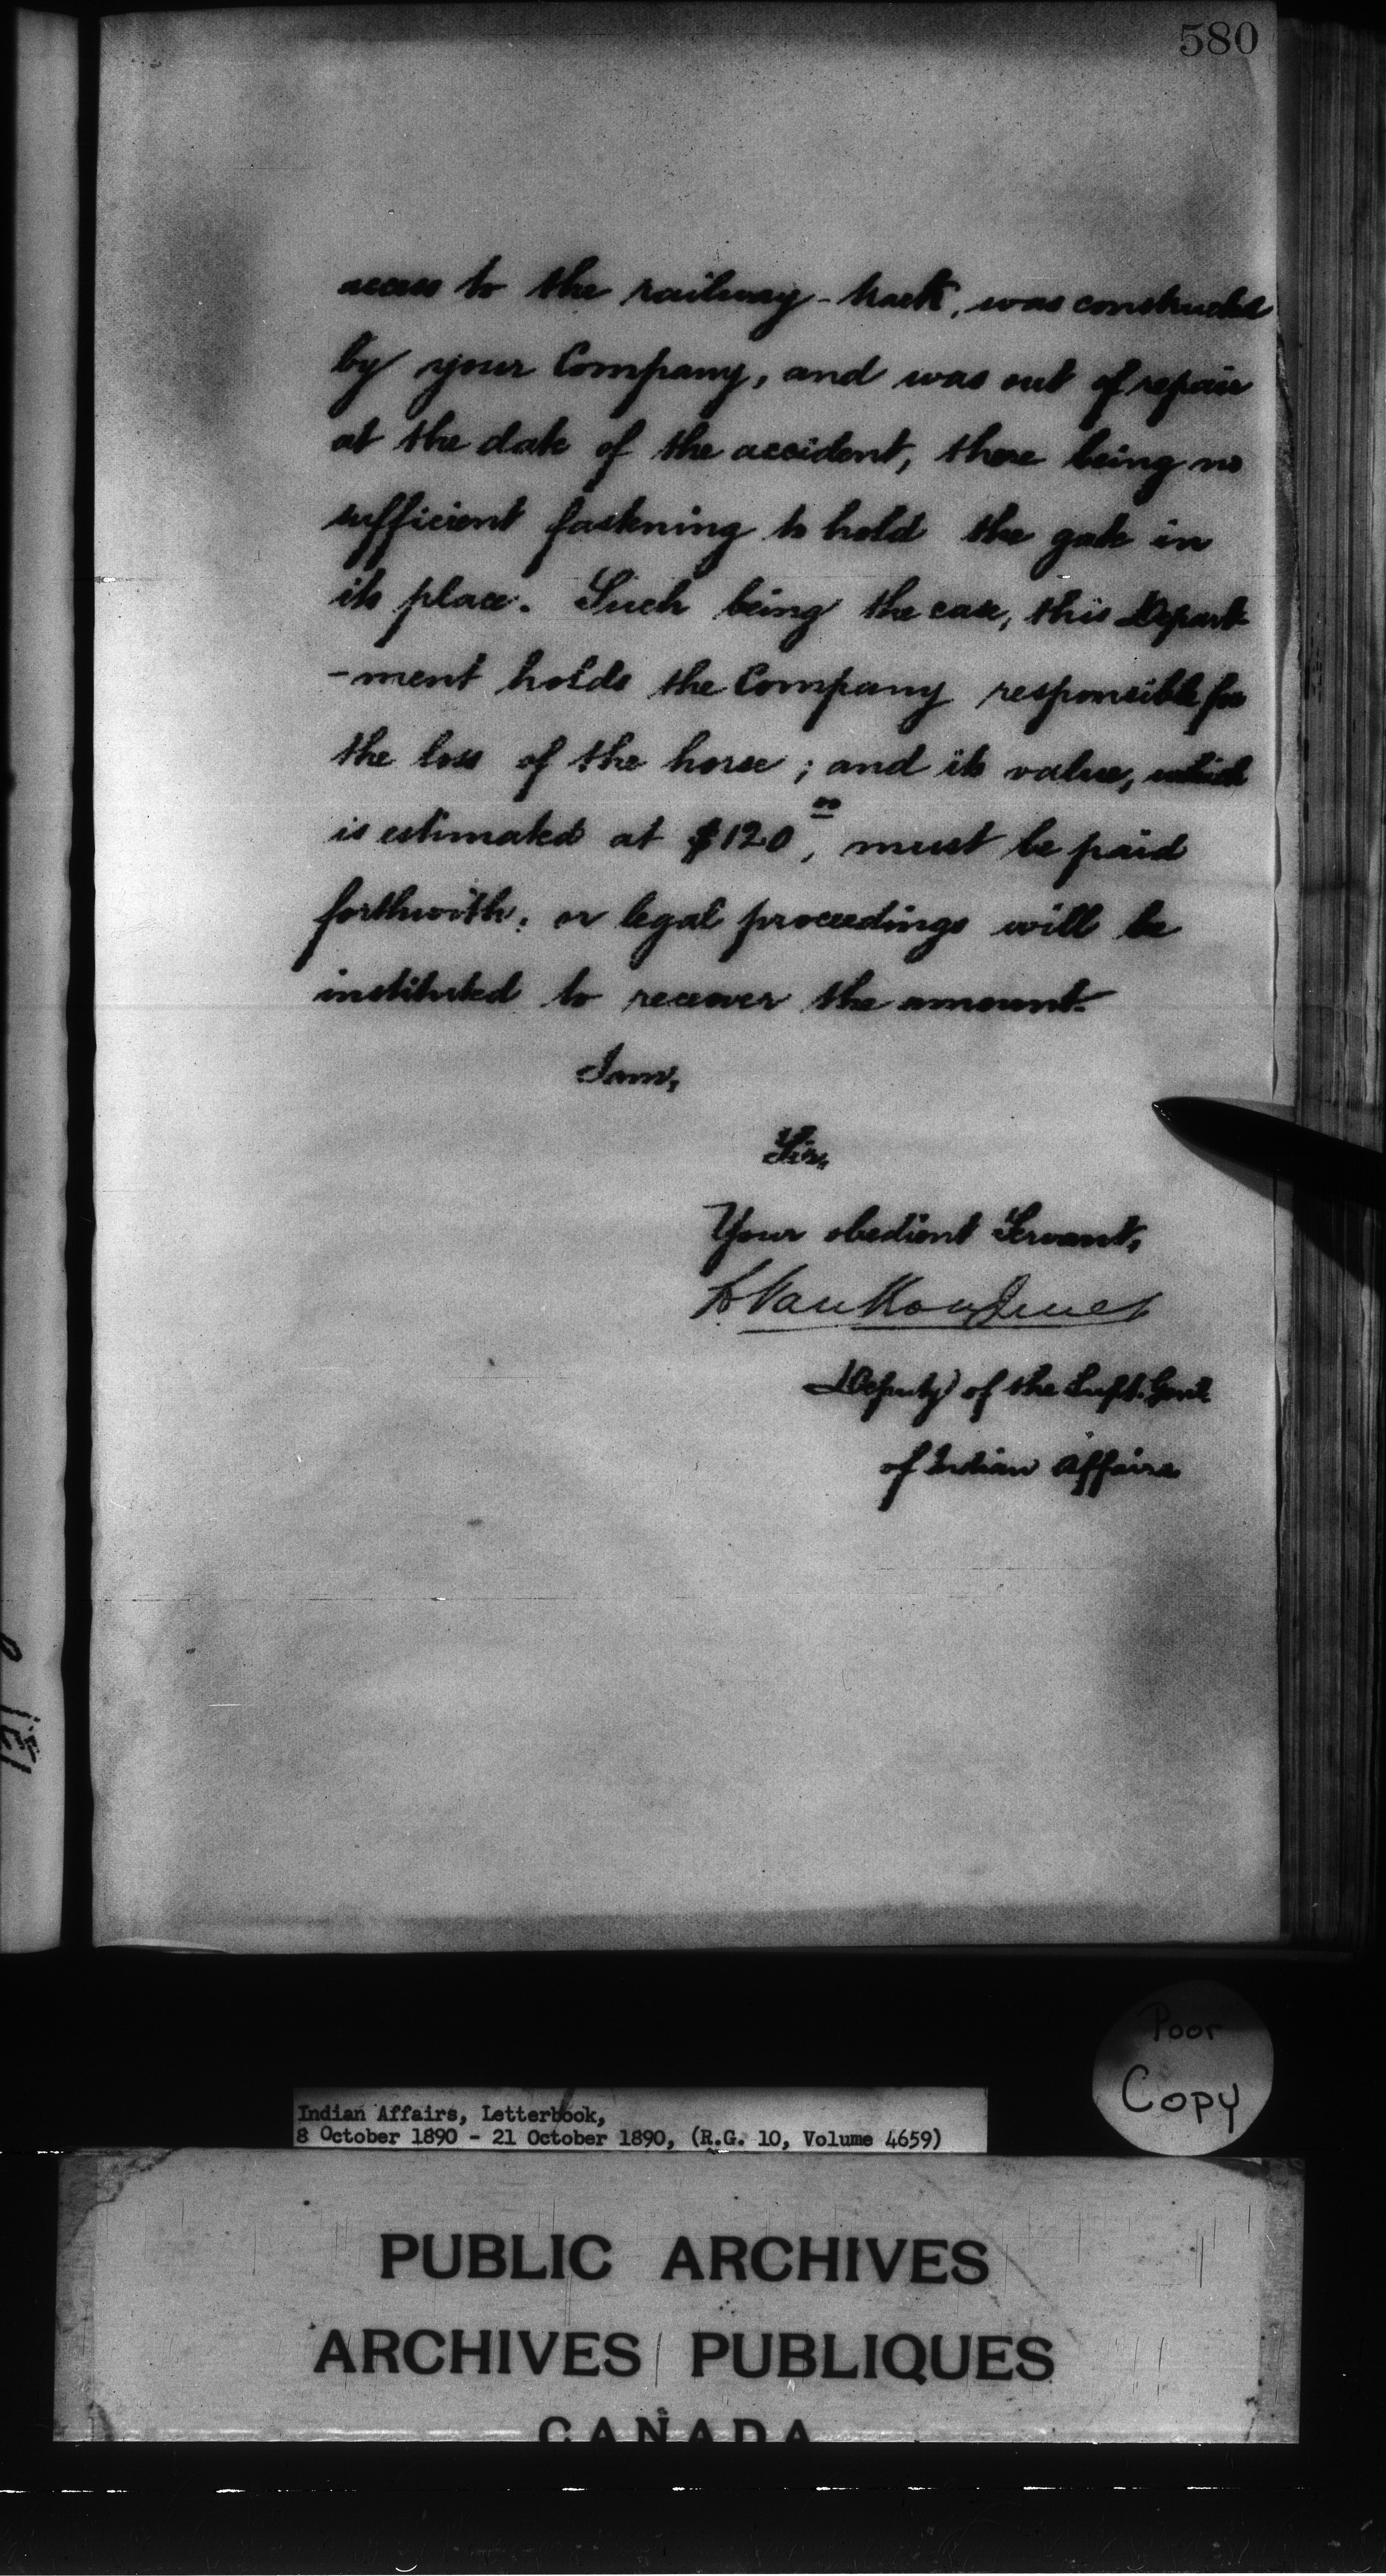 580
access to the railway-track, was constructed
by your Company, and was out of repair
at the date of the accident, there being no
sufficient fastening to hold the gate in
its place. Such being the case, this Depart
-ment holds the Company responsible for
the loss of the horse; and its value, which
is estimated at $120 00, must be paid
forthwith, or legal proceedings will be
instituted to recover the amount.
I am,
Sir,
Your obedient Servant,
L Vankoughnet
Deputy of the Supt. Genl.
of Indian Affairs
Poor
Copy
Indian Affairs, Letterbook,
8 October 1890 - 21 October 1890, (R.G. 10, Volume 4659)
PUBLIC ARCHIVES
ARCHIVES PUBLIQUES
CANADA